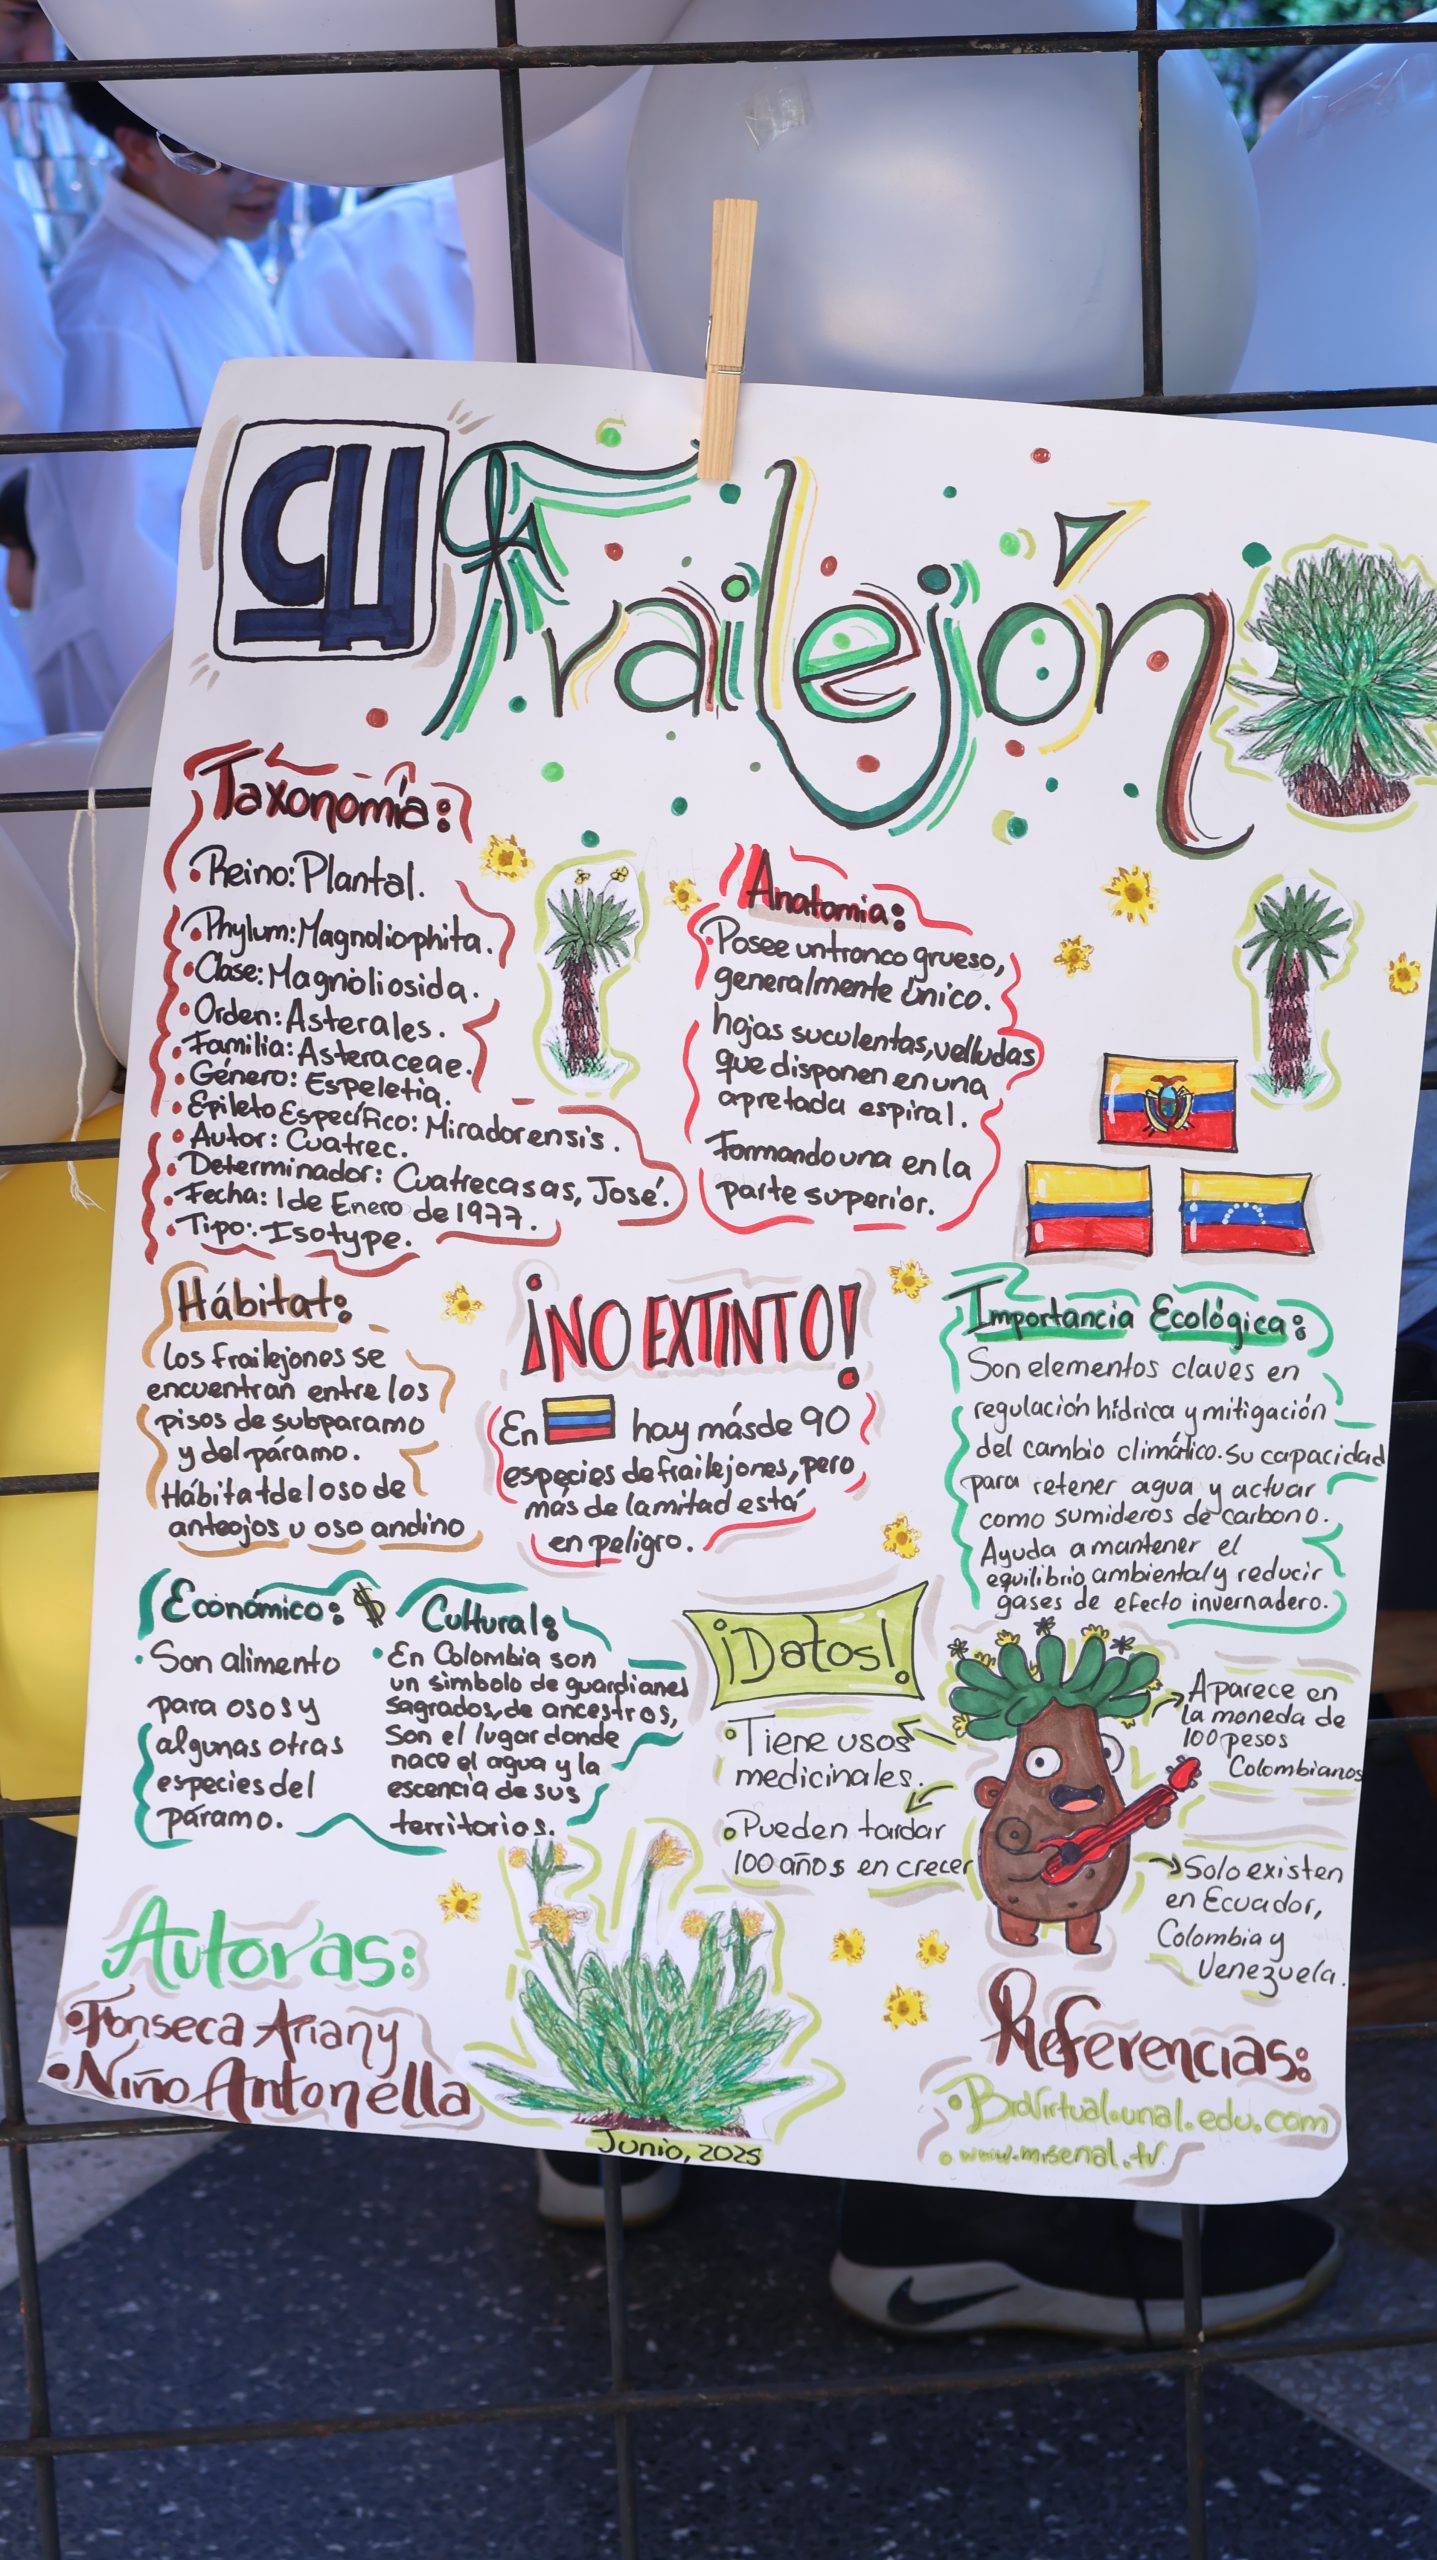 CU
Frailejón
Taxonomía:
• Reino: Plantal.
• Phylum: Magnoliophita.
• Clase: Magnoliosida.
• Orden: Asterales.
• Familia: Asteraceae.
• Género: Espeletia.
• Epileto Específico: Miradorensis.
• Autor: Cuatrec.
• Determinador: Cuatrecasas, José.
• Fecha: 1 de Enero de 1977.
• Tipo: Isotype.
Anatomia:
• Posee un tronco grueso,
generalmente único.
hojas suculentas, velludas
que disponen en una
apretada espiral.
Formando una en la
parte superior.
Hábitat:
Los frailejones se
encuentran entre los
pisos de subparamo
y del páramo.
Hábitat del oso de
anteojos u oso andino
¡NO EXTINTO!
En hay más de 90
especies de frailejones, pero
más de la mitad está
en peligro.
Importancia Ecológica:
Son elementos claves en
regulación hídrica y mitigación
del cambio climático. Su capacidad
para retener agua y actuar
como sumideros de carbono.
Ayuda a mantener el
equilibrio ambiental y reducir
gases de efecto invernadero.
Económico: $
• Son alimento
para osos y
algunas otras
especies del
páramo.
Cultural:
• En Colombia son
un simbolo de guardianes
sagrados, de ancestros,
Son el lugar donde
nace el agua y la
escencia de sus
territorios.
¡Datos!
• Tiene usos
medicinales.
• Pueden tardar
100 años en crecer
Aparece en
la moneda de
100 pesos
Colombianos
Solo existen
en Ecuador,
Colombia y
Venezuela.
Autoras:
• Fonseca Ariany
• Niño Antonella
Junio, 2025
Referencias:
• BidVirtual.unal.edu.com
• www.misenal.tv